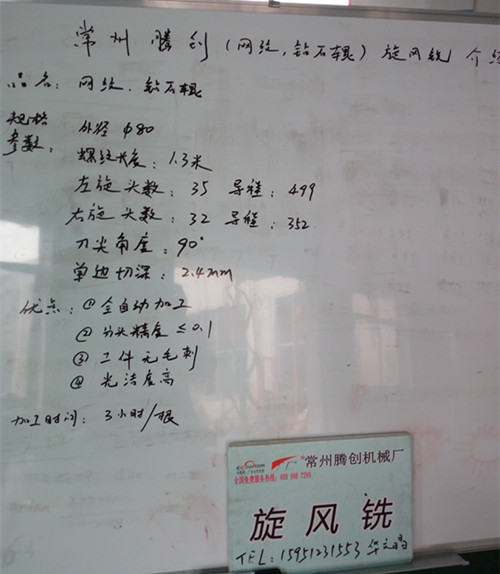 常州腾创(网纹,钻石辊)旋风铣 介绍
品名: 网纹. 钻石辊
规格参数: 外径 φ80
螺纹长度: 1.3米
左旋头数: 35 导程: 499
右旋头数: 32 导程: 352
刀尖角度: 90°
单边切深: 2.4mm
优点: ① 全自动加工
② 分头精度 ≤0.1
③ 工件无毛刺
④ 光洁度高
加工时间: 3小时/根
常州腾创机械厂
全国免费服务热线: 400 008 7299
旋风铣
TEL: 15951231553